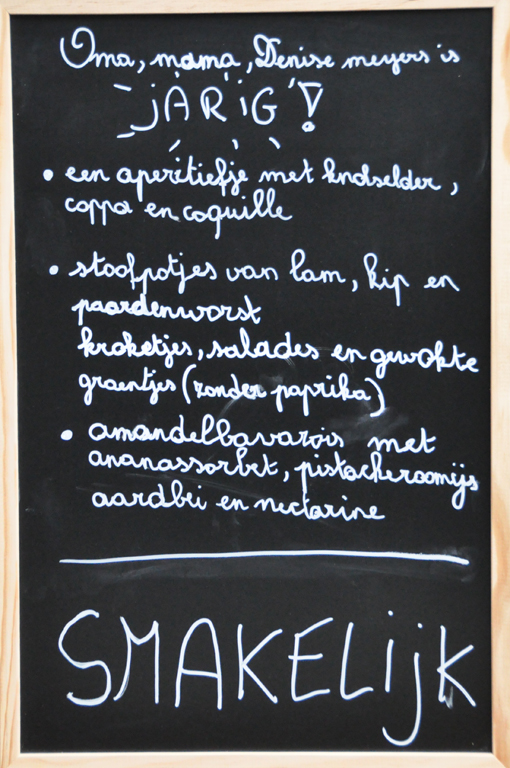 Oma, mama, Denise meyers is
jARiG!
• een aperitiefje met knolselder,
coppa en coquille
• stoofpotjes van lam, kip en
paardenworst
kroketjes, salades en gewokte
groentjes (zonder paprika)
• amandelbavarois met
ananassorbet, pistacheroomijs
aardbei en nectarine
SMAKELijK